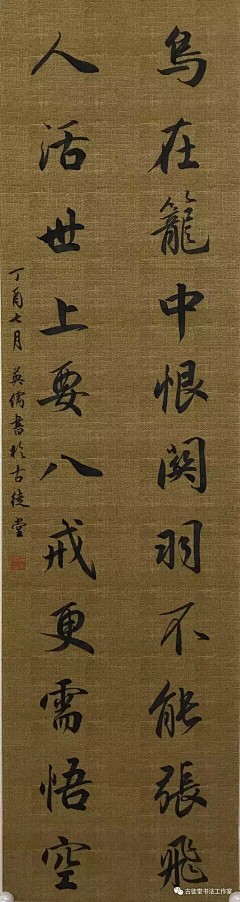 鸟在籠中恨関羽不能張飛
人活世上要八戒更需悟空
丁酉七月英儒書於古徒堂
古徒堂书法工作家